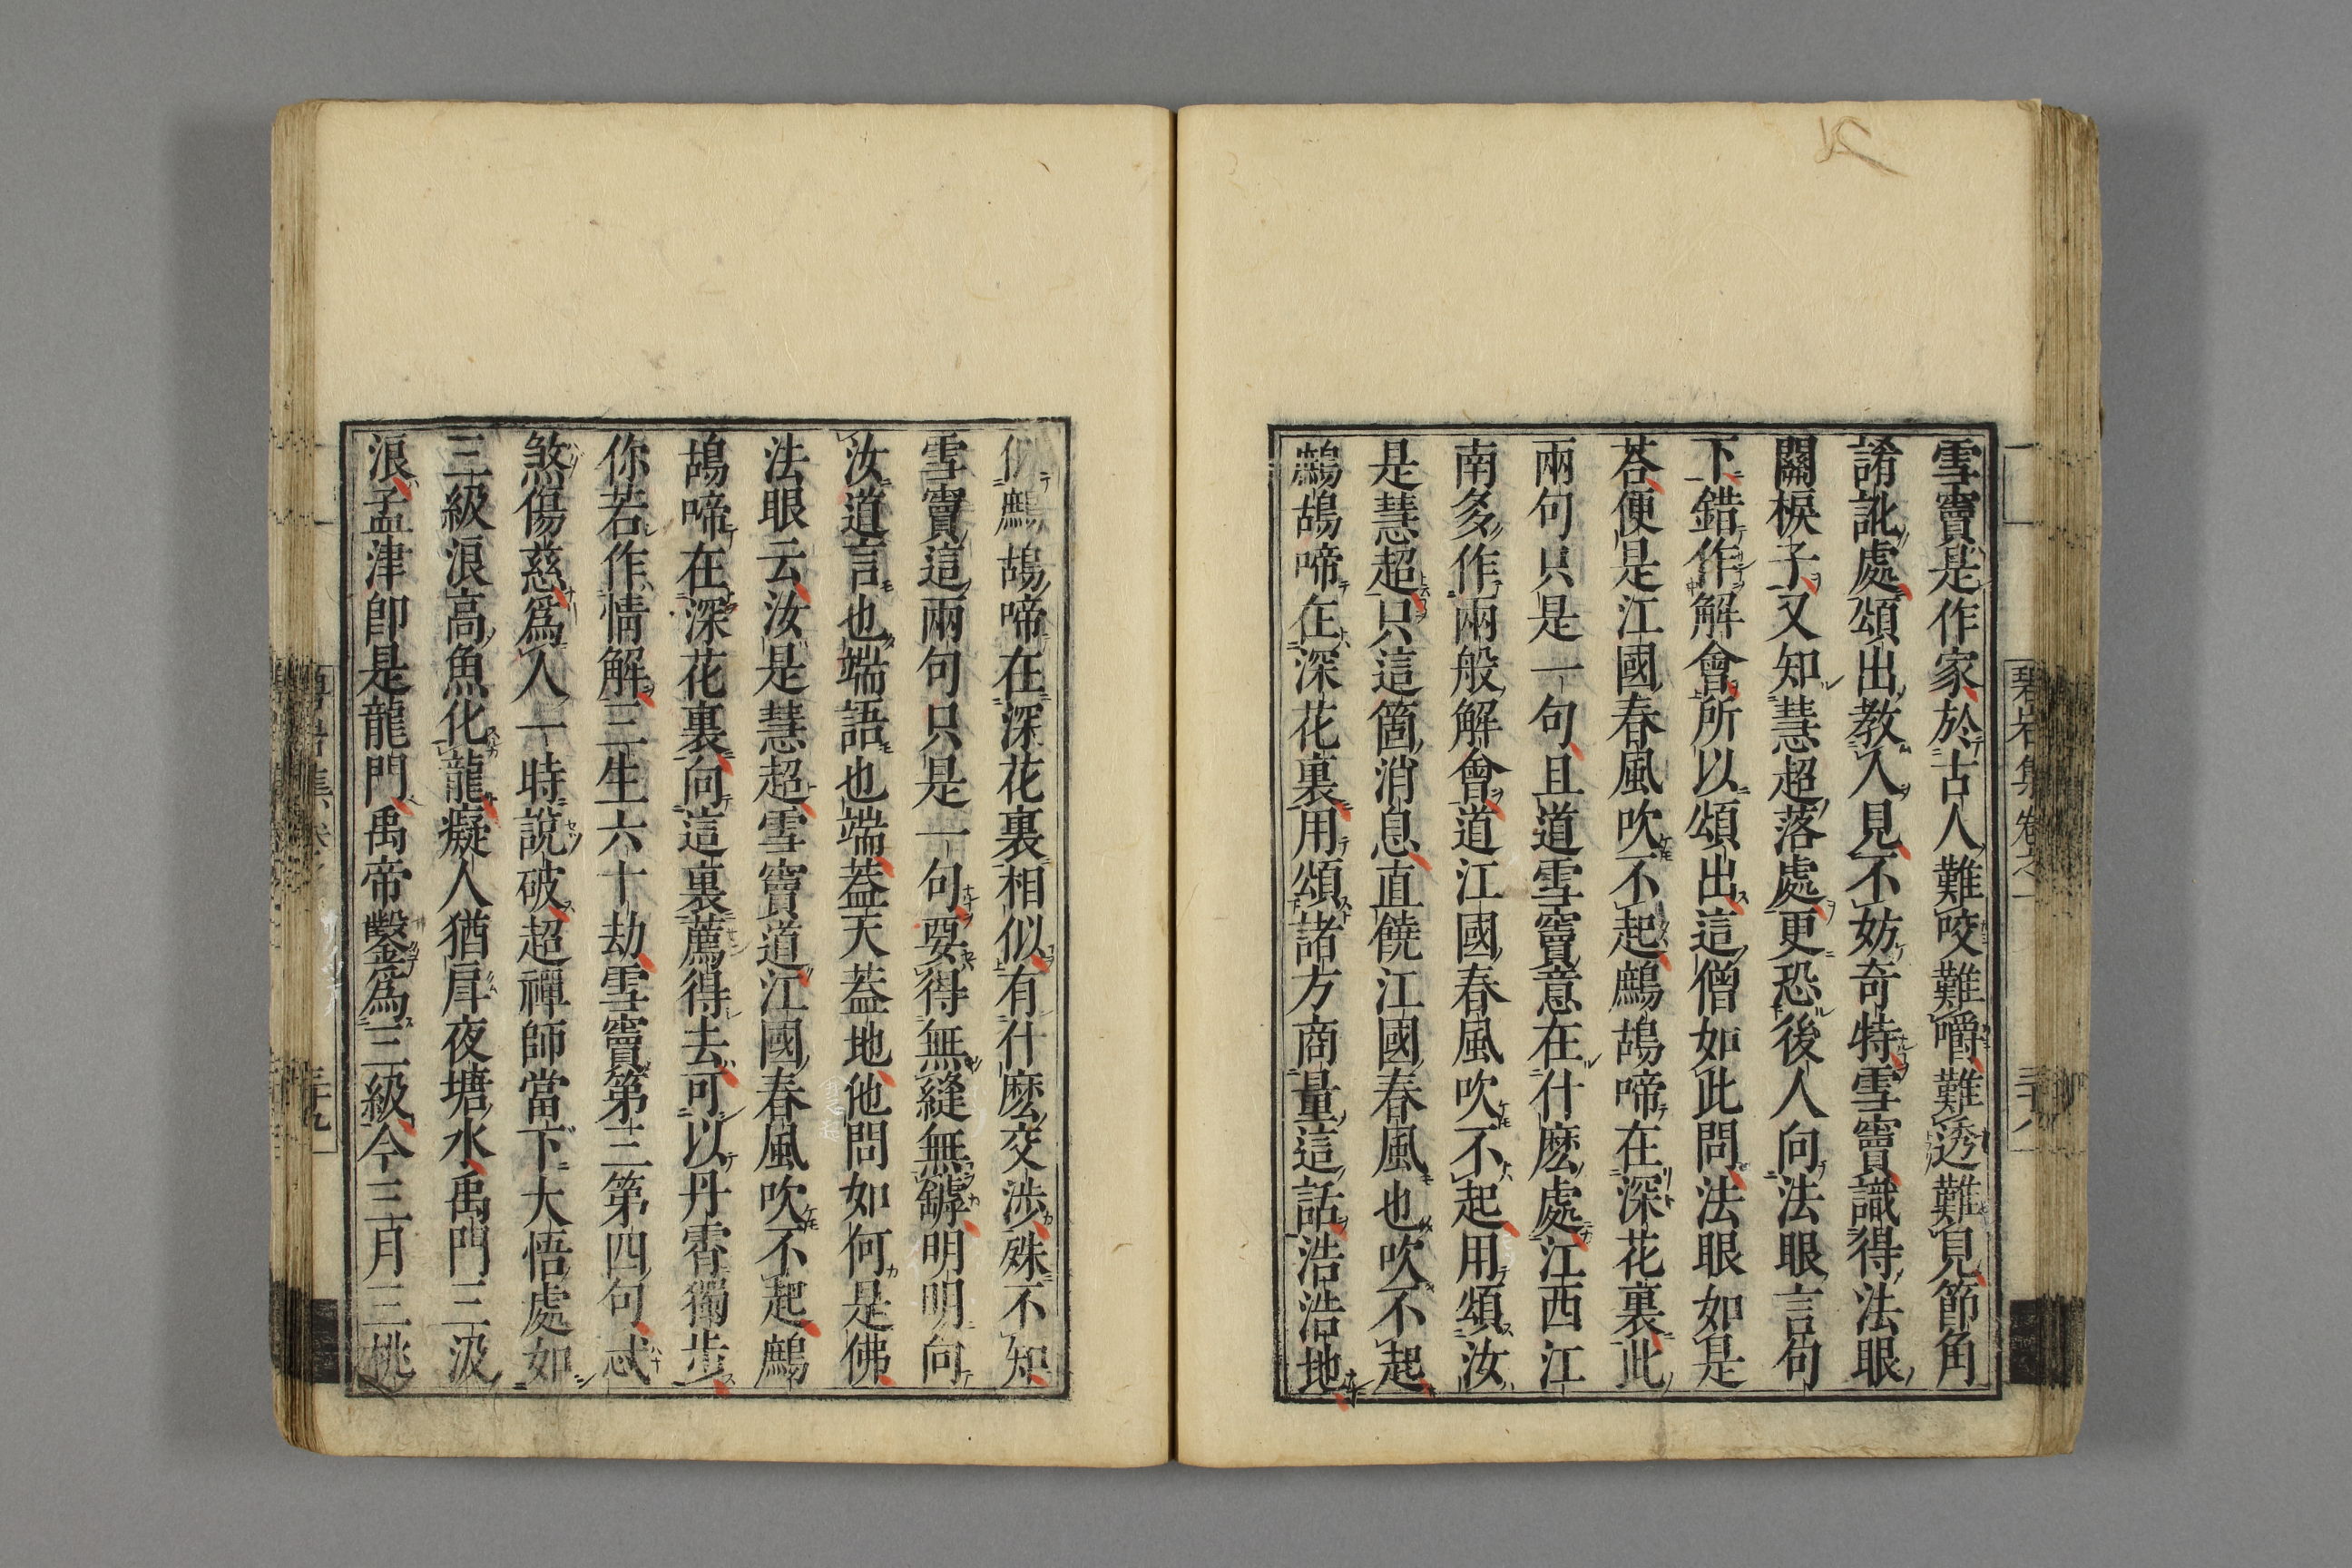 雪竇是作家於古人難咬難嚼難透難見節角
誵訛處頌出教人見不妨奇特雪竇識得法眼
關棙子又知慧超落處更恐後人向法眼言句
下錯作解會所以頌出這僧如此問法眼如是
荅便是江國春風吹不起鷓鴣啼在深花裏此
兩句只是一句且道雪竇意在什麽處江西江
南多作兩般解會道江國春風吹不起用頌汝
是慧超只這箇消息直饒江國春風也吹不起
鷓鴣啼在深花裏用頌諸方商量這話浩浩地
似鷓鴣啼在深花裏相似有什麽交涉殊不知
雪竇這兩句只是一句要得無縫無罅明明向
汝道言也端語也端蓋天蓋地他問如何是佛
法眼云汝是慧超雪竇道江國春風吹不起鷓
鴣啼在深花裏向這裏薦得去可以丹霄獨步
你若作情解三生六十劫雪竇第三第四句忒
煞傷慈爲人一時說破超禪師當下大悟處如
三級浪高魚化龍癡人猶戽夜塘水禹門三汲
浪孟津卽是龍門禹帝鑿爲三級今三月三桃
碧岩集卷之一